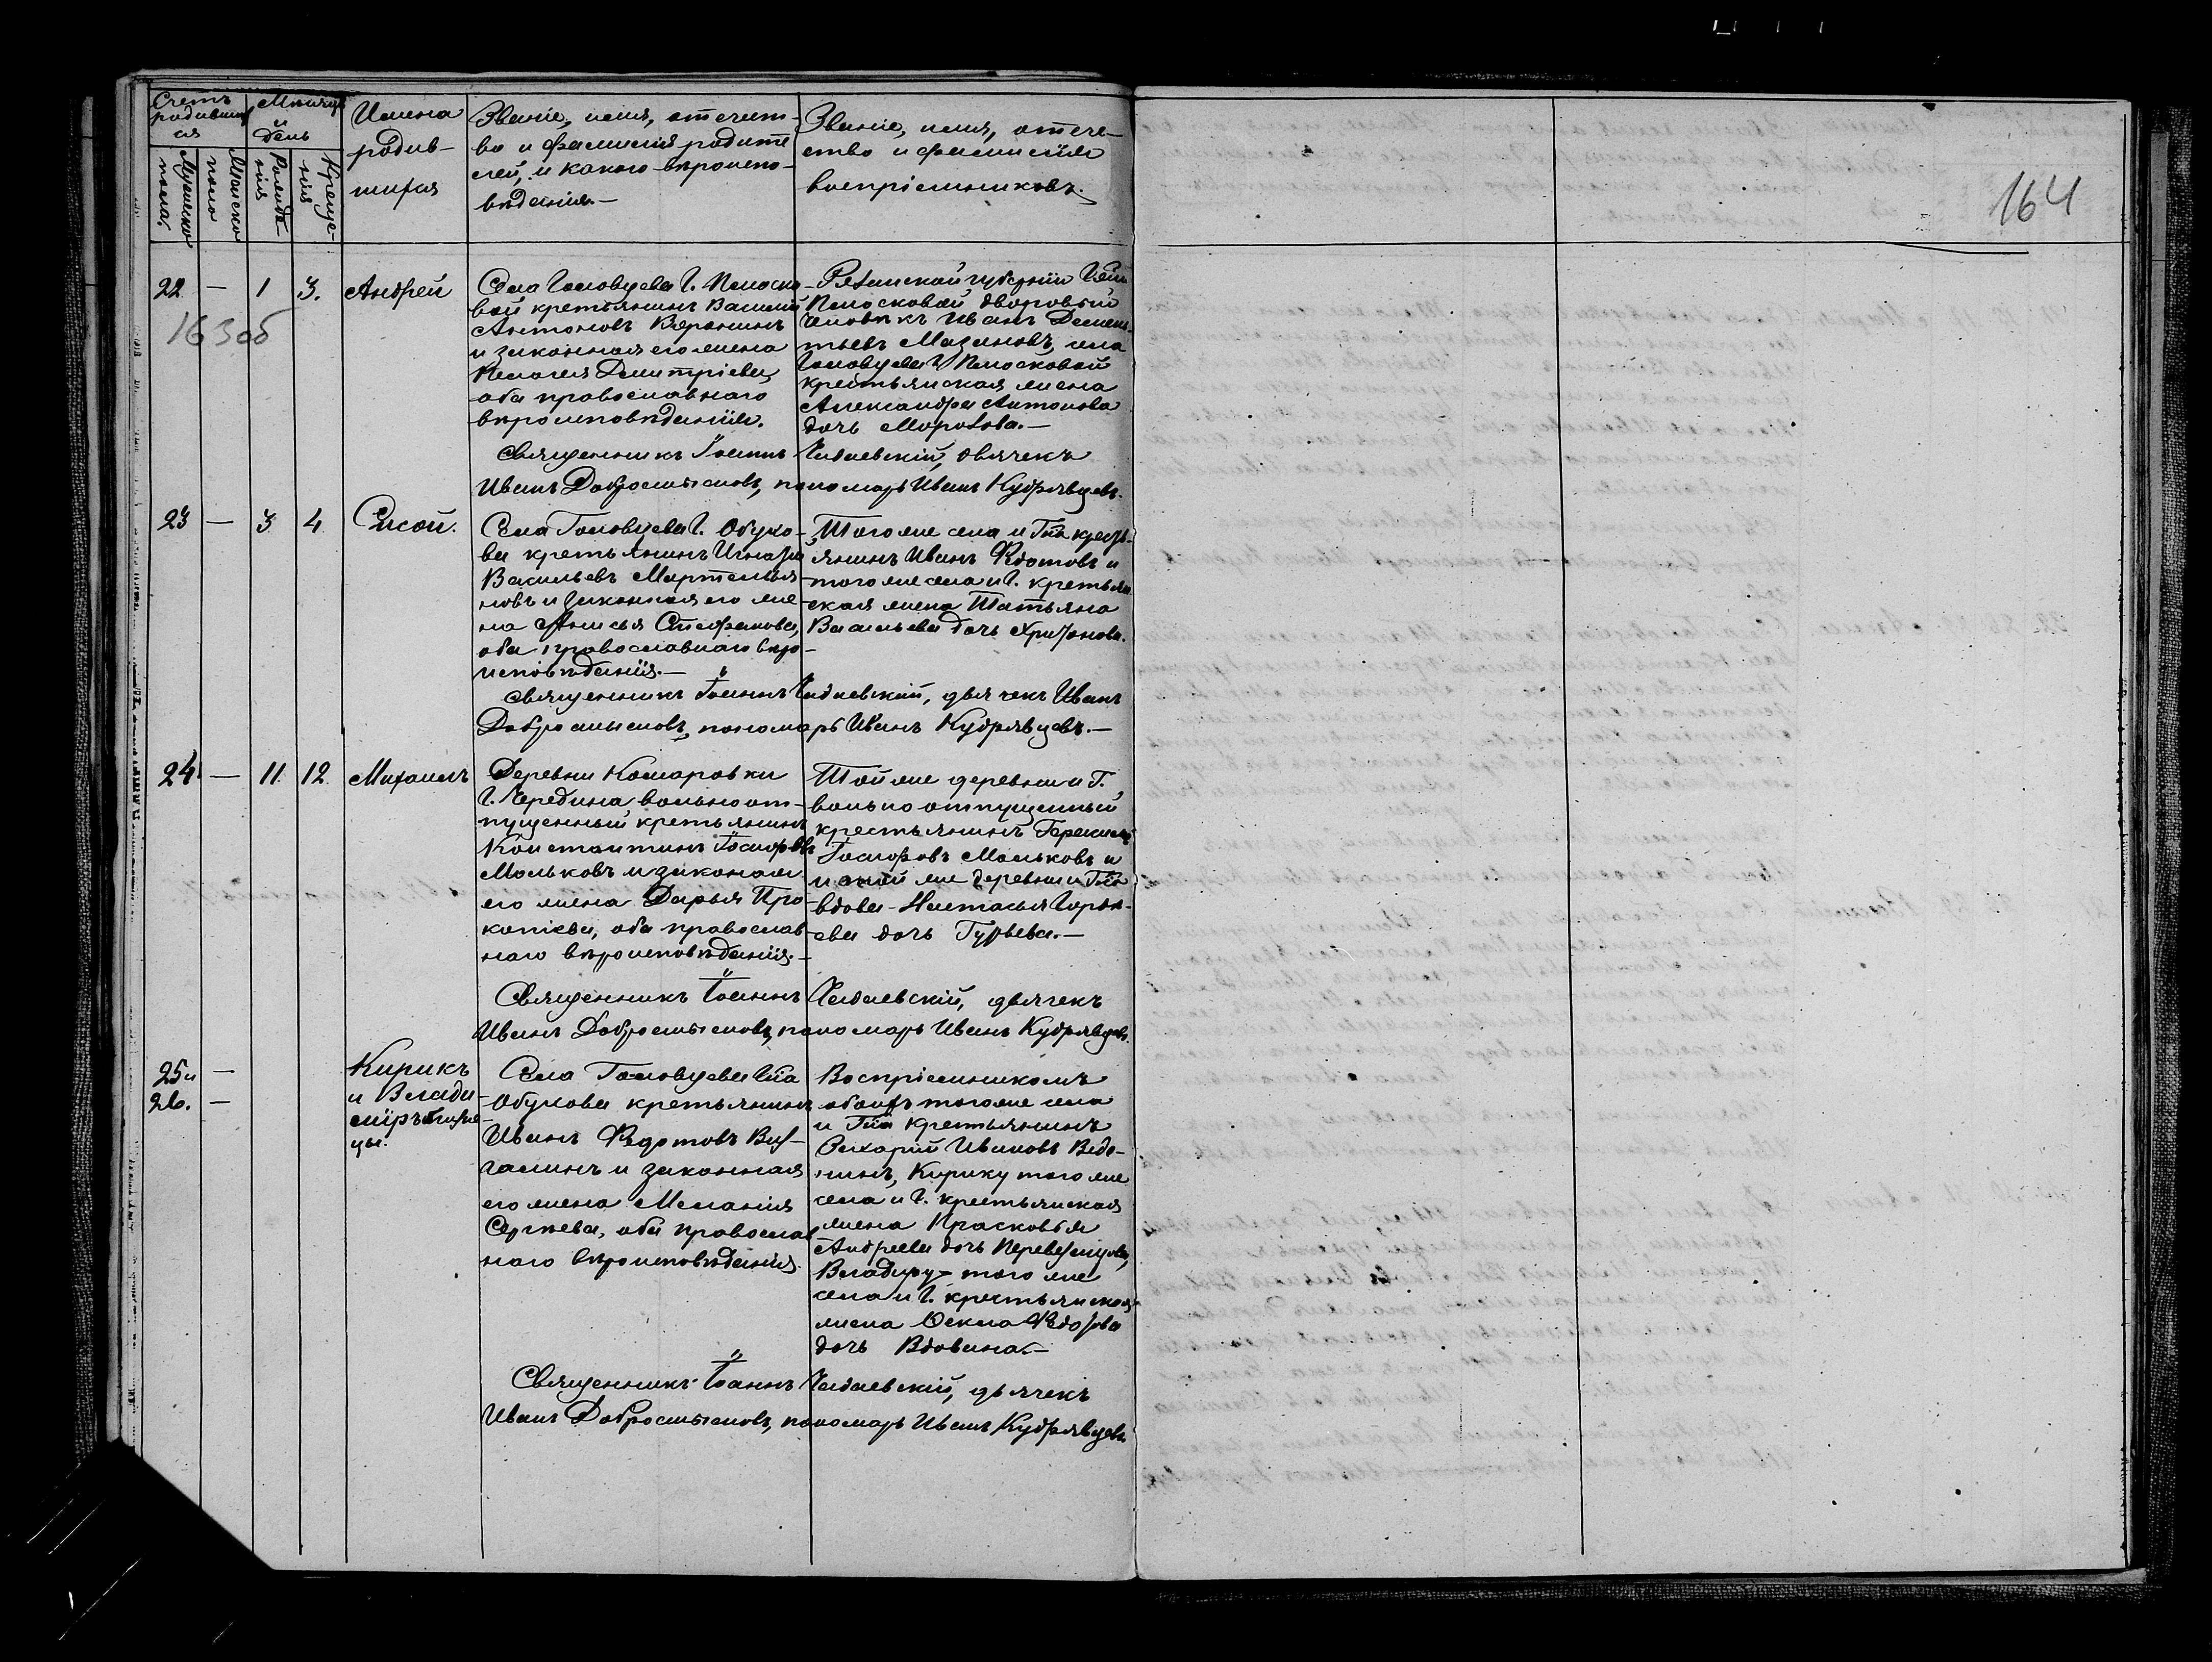 Счетъ родившихся
Мѣсяцъ и день
Имена родив-
шихся
Званіе, имя, отечест-
во и фамилія родите
лей, и какого вѣроиспо-
вѣданія.—
Званіе, имя, отече-
ство и фамилія
воспріемниковъ.
Мужеска пола.
Женска пола
Рожде-
нія
Креще-
нія
164
22 — 1 3. Андрей
Села Головцева Г. Плоско-
вой крестьянинъ Василій
Антоновъ
и законная его жена
Пелагея Димитріева,
оба православнаго
вѣроисповѣданія.
Рязанской губерніи Г.
Плосковой дворовый
человѣкъ Иванъ Демен-
тьевъ Мазановъ, села
Головцева Г. Плосковой
крестьянская жена
Александра Антонова
дочь Морозова.—
163об
Священникъ Іоаннъ Чадаевскій, дьячекъ
Иванъ Добромысловъ, пономарь Иванъ Кудрявцевъ.
23 — 3 4 Сисой.
Села Головцева Г. Обухо-
ва крестьянинъ Игнатій
Васильевъ Мартемья-
новъ и законная его же-
на Анисья Стефанова,
оба православнаго вѣро-
исповѣданія.—
Того же села и Гна кресть-
янинъ Иванъ Ѳедотовъ и
того же села и Г. крестьян-
ская жена Татьяна
Васильева дочь Хрисонова.
Священникъ Іоаннъ Чадаевскій, дьячекъ Иванъ
Добромысловъ, пономарь Иванъ Кудрявцевъ.—
24 — 11. 12. Михаилъ
Деревни Комаровки
Г. Чередина вольноот-
пущенный крестьянинъ
Константинъ Іосифовъ
Мольковъ и законная
его жена Дарья Про-
копіева, оба православ-
наго вѣроисповѣданія.—
Той же деревни и Г.
вольноотпущенный
крестьянинъ Герасимъ
Іосифовъ Мольковъ и
той же деревни и Гна
вдова Настасья
ева дочь Гурьева.—
Священникъ Іоаннъ Чадаевскій, дьячекъ
Иванъ Добромысловъ, пономарь Иванъ Кудрявцевъ.
25 и —
26. —
Кирикъ
и Влади-
міръ близне-
цы.
Села Головцева Гна
Обухова крестьянинъ
Иванъ Ѳедотовъ
и законная
его жена Меланія
Сергѣева, оба православ
наго вѣроисповѣданія.
Воспріемникомъ
обоихъ того же села
и Гна крестьянинъ
Захарій Ивановъ Веде-
нинъ, Кирику того же
села и Г. крестьянская
жена Прасковья
Андреева дочь Перевезинцева,
Владиру того же
села и Г. крестьянская
жена Ѳекла Ѳедорова
дочь Вдовина.—
Священникъ Іоаннъ Чадаевскій, дьячекъ
Иванъ Добромысловъ, пономарь Иванъ Кудрявцевъ